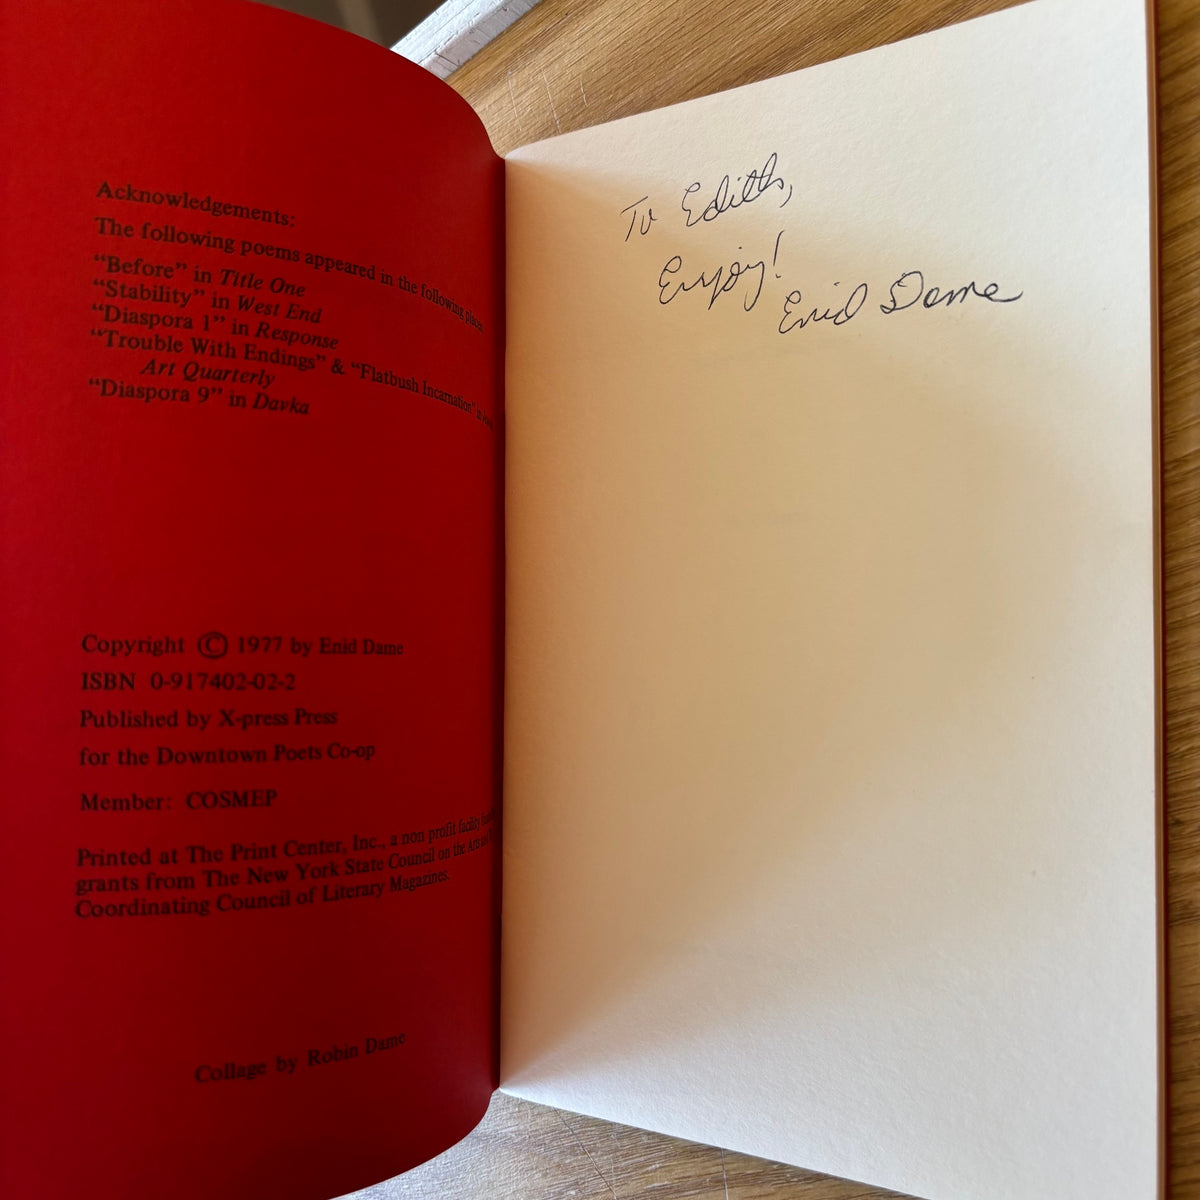 Acknowledgements:
The following poems appeared in the following places
"Before" in Title One
"Stability" in West End
"Diaspora 1" in Response
"Trouble With Endings" & "Flatbush Incarnation" in
Art Quarterly
"Diaspora 9" in Davka
Copyright © 1977 by Enid Dame
ISBN 0-917402-02-2
Published by X-press Press
for the Downtown Poets Co-op
Member: COSMEP
Printed at The Print Center, Inc., a non profit facility
grants from The New York State Council on the Arts and
Coordinating Council of Literary Magazines.
Collage by Robin Dame
To Edith,
Enjoy!
Enid Dame